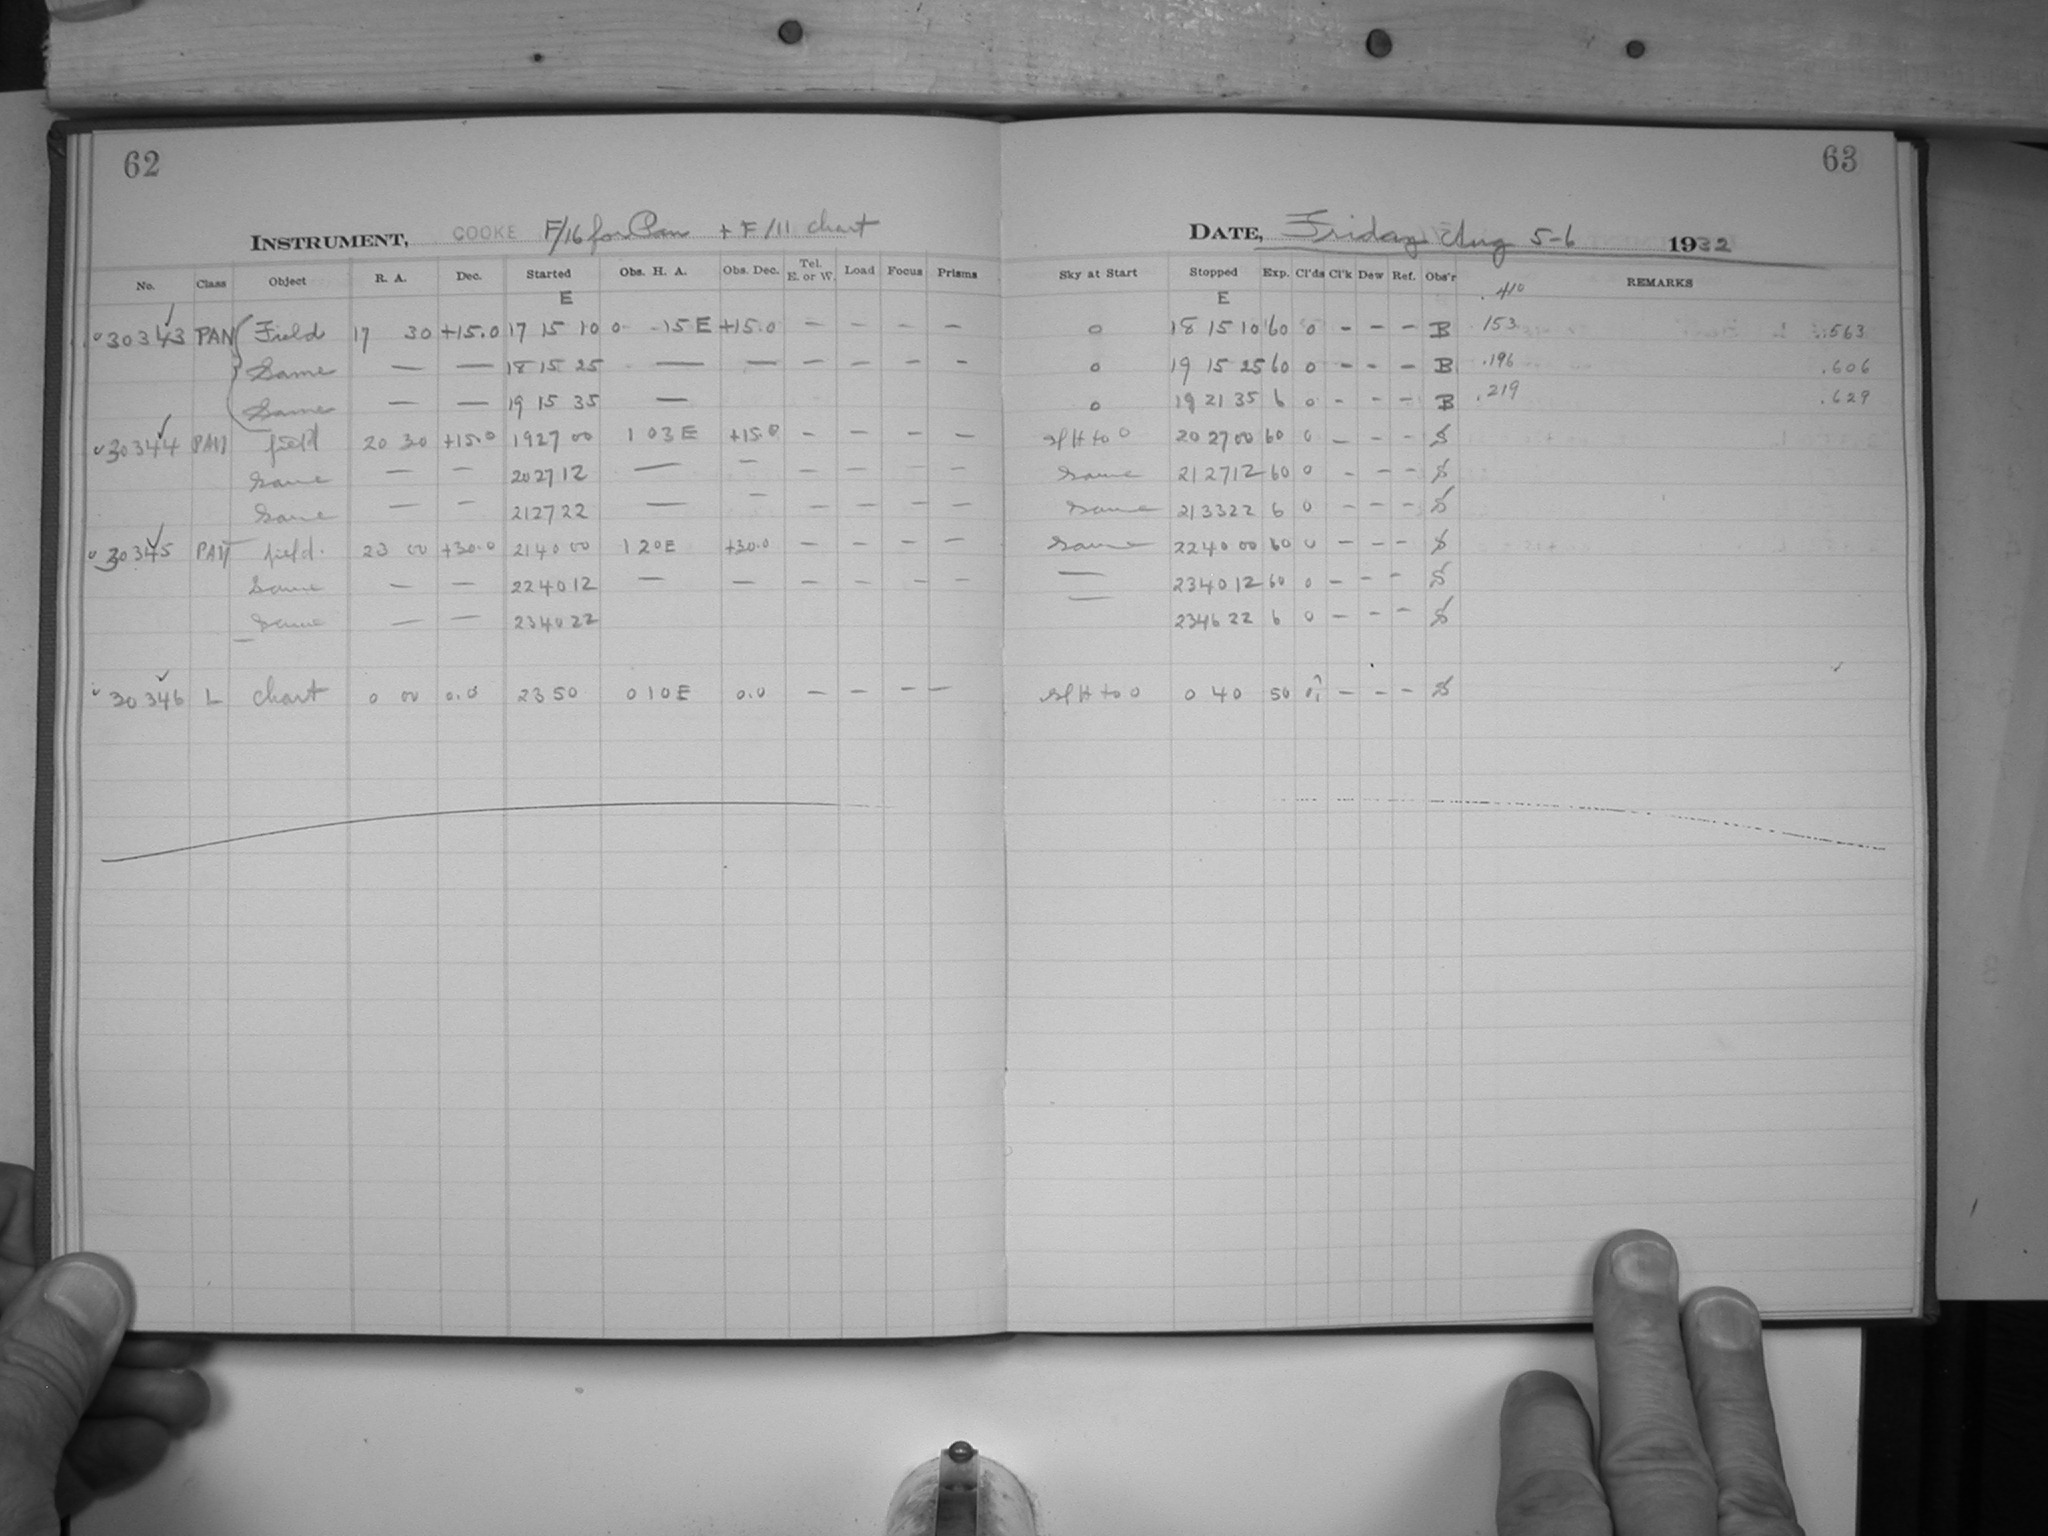 62
INSTRUMENT, COOKE F/16 for Pan + F/11 chart
No. Class Object R. A. Dec. Started Obs. H. A. Obs. Dec. Tel. E. or W. Load Focus Prisms
E
30343 PAN Field 17 30 +15.0 17 15 10 0 -15 E +15.0 - - - -
Same — — 18 15 25 — — - - - -
Same — — 19 15 35 —
30344 PAN field 20 30 +15.0 19 27 00 1 03 E +15.0 - - - -
Same — — 20 27 12 — - - - - -
Same — — 21 27 22 — - - - - -
30345 PAN field. 23 00 +30.0 21 40 00 1 20 E +30.0 - - - -
Same — — 22 40 12 — — - - - -
Same — — 23 40 22
30346 L chart 0 00 0.0 23 50 0 10 E 0.0 - - - -
63
DATE, Friday Aug 5-6 1932
Sky at Start Stopped Exp. Cl'ds Cl'k Dew Ref. Obs'r REMARKS
E .410
0 18 15 10 60 0 - - - B .153 .563
0 19 15 25 60 0 - - - B .196 .606
0 19 21 35 6 0 - - - B .219 .629
to 0 20 27 00 60 0 - - - S
Same 21 27 12 60 0 - - - S
Same 21 33 22 6 0 - - - S
Same 22 40 00 60 0 - - - S
— 23 40 12 60 0 - - - S
— 23 46 22 6 0 - - - S
to 0 0 40 50 - - - S